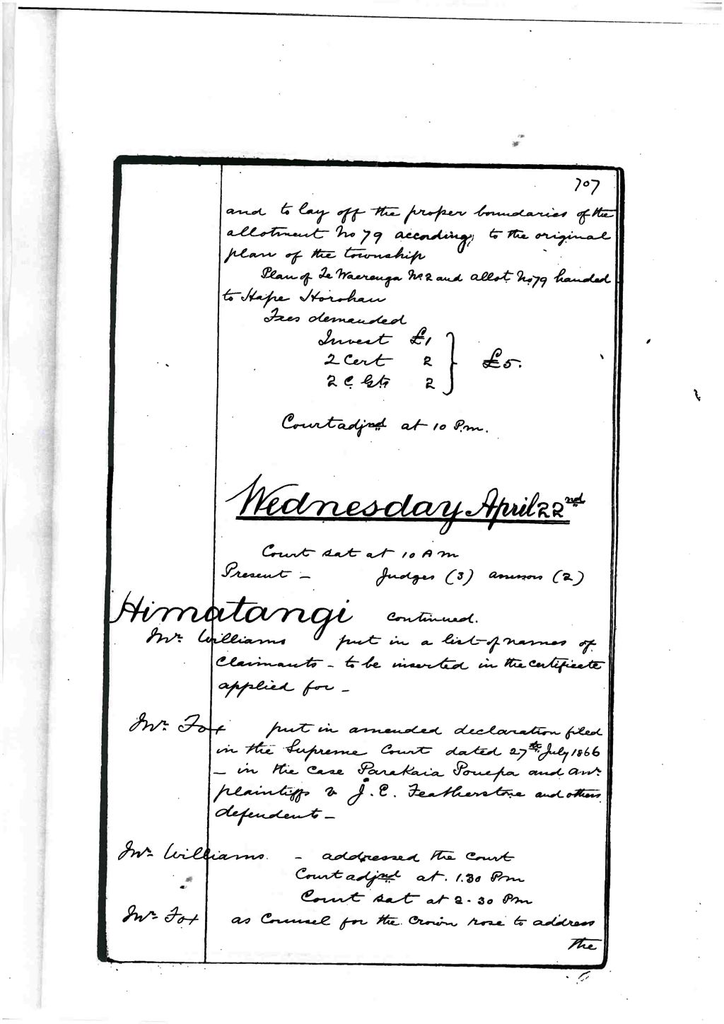 707
and to lay off the proper boundaries of the
allotment No 79 according to the original
plan of the township
Plan of Te Waerenga No 2 and allot. No 79 handed
to Hape Horohau
Fees demanded
Invest £1
2 Cert 2 } £5.
2 C. Gts 2
Court adjrnd at 10 P.m.
Wednesday April 22nd
Court sat at 10 A m
Present – Judges (3) assessors (2)
Himatangi continued.
Mr. Williams put in a list of names of
Claimants – to be inserted in the certificate
applied for –
Mr. Fox put in amended declaration filed
in the Supreme Court dated 27th July 1866
– in the case Parakaia Pouepa and anr.
plaintiffs v J. E. Featherstone and others
defendents –
Mr. Williams. – addressed the Court
Court adjrnd at. 1.30 Pm
Court sat at 2-30 Pm
Mr. Fox as Counsel for the Crown rose to address
the